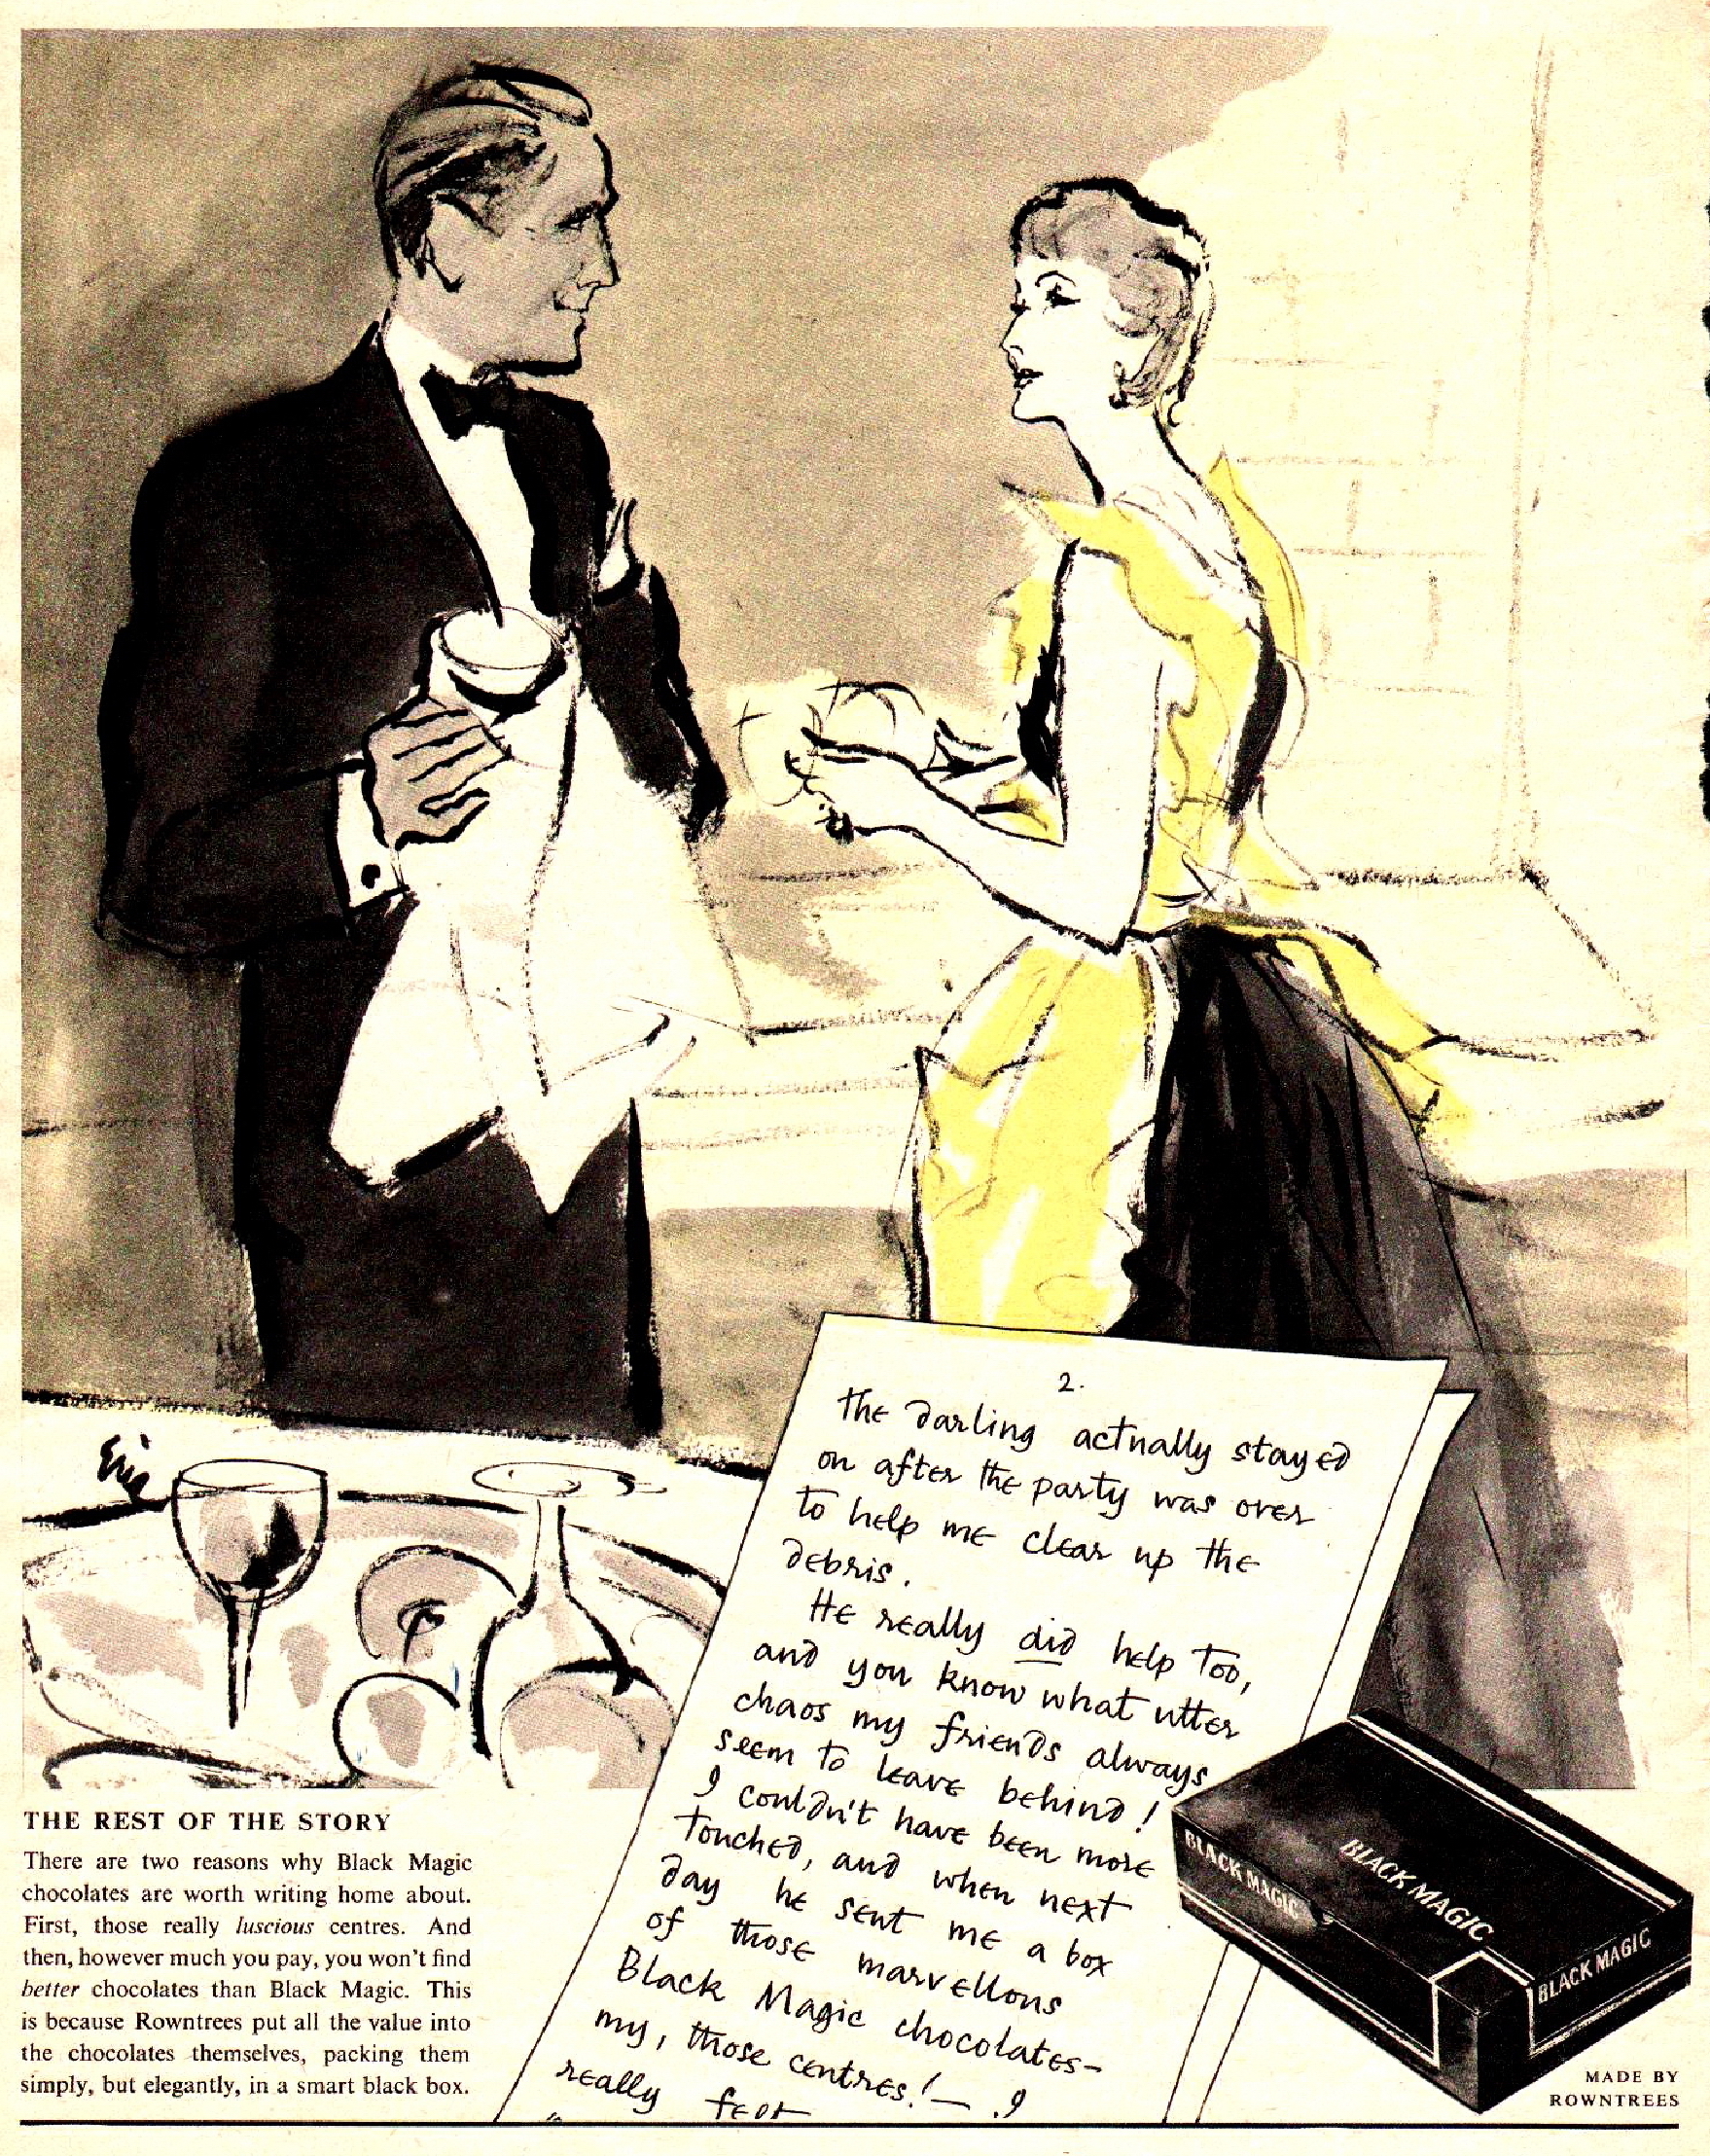 2.
the darling actually stayed
on after the party was over
to help me clear up the
debris.
He really did help too,
and you know what utter
chaos my friends always
seem to leave behind!
I couldn't have been more
touched, and when next
day he sent me a box
of those marvellous
Black Magic chocolates—
my, those centres! — . I
really
Eric
THE REST OF THE STORY
There are two reasons why Black Magic
chocolates are worth writing home about.
First, those really luscious centres. And
then, however much you pay, you won't find
better chocolates than Black Magic. This
is because Rowntrees put all the value into
the chocolates themselves, packing them
simply, but elegantly, in a smart black box.
BLACK MAGIC
BLACK MAGIC
BLACK MAGIC
MADE BY
ROWNTREES